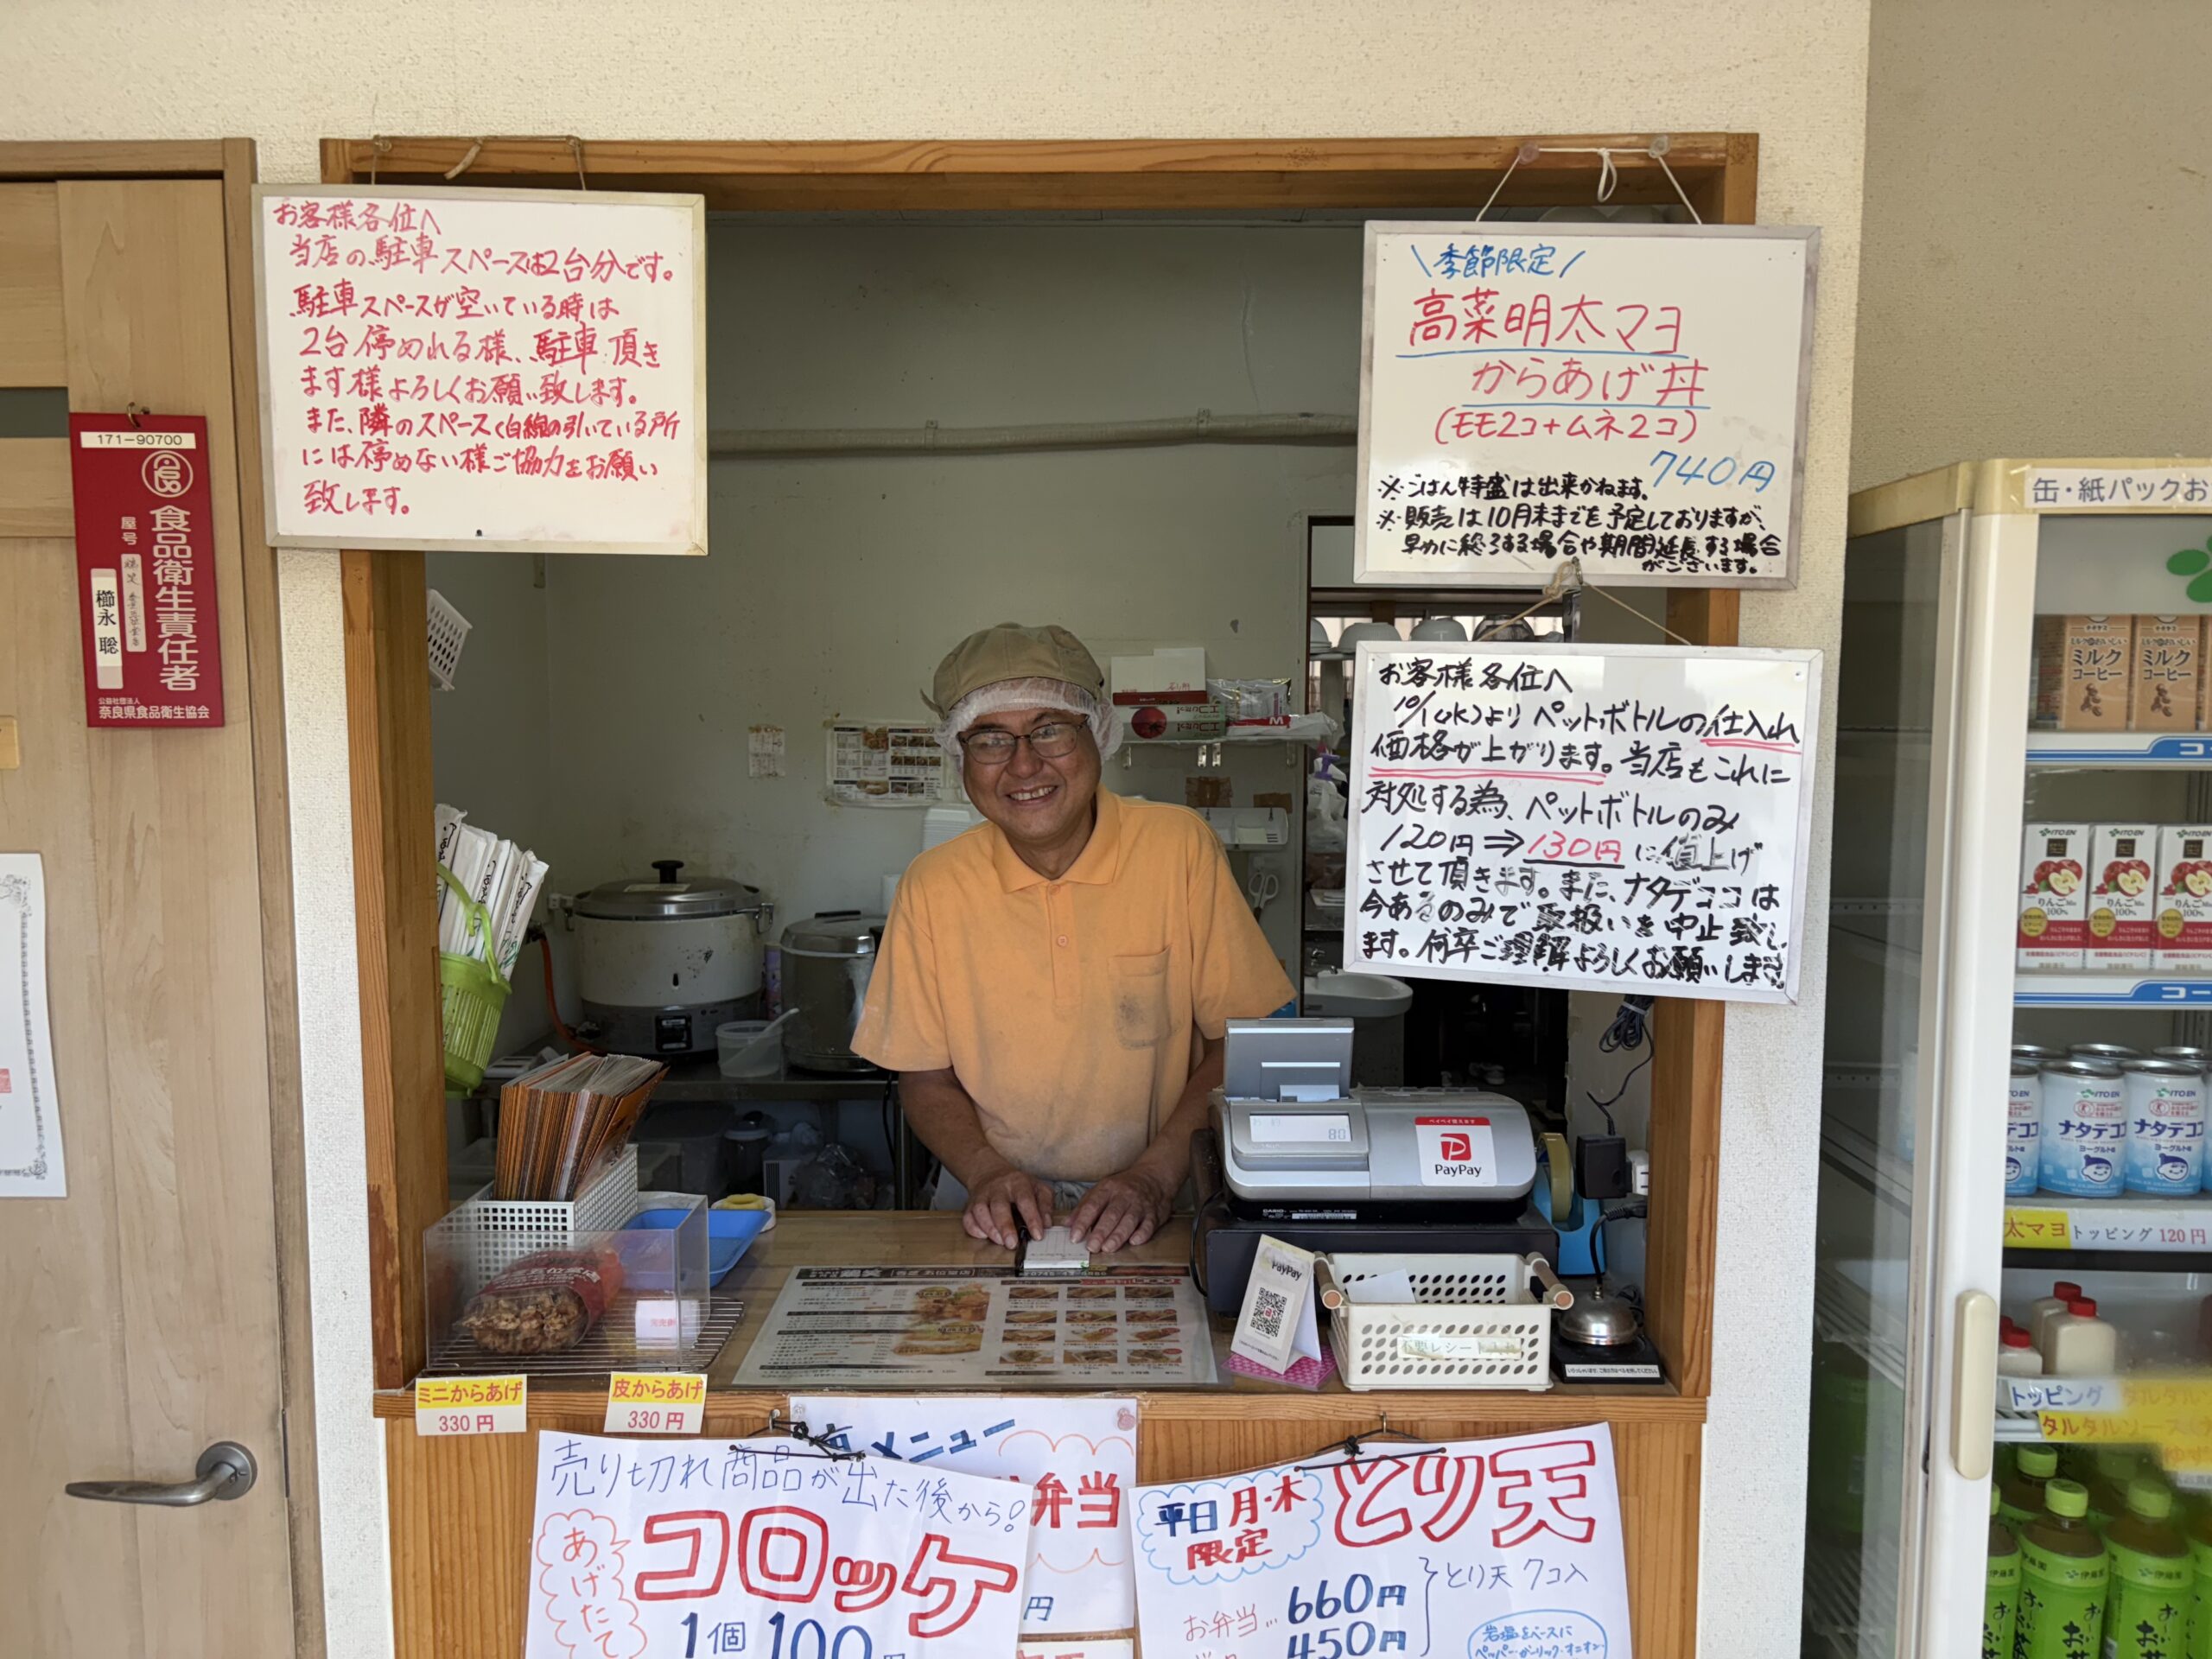 お客様各位へ
当店の駐車スペースは2台分です。
駐車スペースが空いている時は
2台停めれる様、駐車頂き
ます様よろしくお願い致します。
また、隣のスペース(白線の引いている所
には停めない様ご協力をお願い
致します。
171-90700
食品衛生責任者
屋号
櫛永 聡
公益社団法人
奈良県食品衛生協会
\季節限定/
高菜明太マヨ
からあげ丼
(モモ2コ+ムネ2コ)
740円
※ごはん特盛は出来かねます。
※販売は10月末までを予定しておりますが、
早めに終了する場合や期間延長する場合
がございます。
お客様各位へ
10/1(水)よりペットボトルの仕入れ
価格が上がります。当店もこれに
対処する為、ペットボトルのみ
120円⇒130円に値上げ
させて頂きます。また、ナタデココは
今あるのみで取扱いを中止致し
ます。何卒ご理解よろしくお願いします。
缶・紙パックお
ミルク
コーヒー
ミルク
コーヒー
ITO EN
りんご
100%
ITO EN
りんご
100%
ITO EN
りんご
100%
ITO EN
ナタデココ
ヨーグルト味
ITO EN
ナタデココ
ヨーグルト味
太マヨトッピング 120円
トッピング
タルタルソース
80
PayPay
CASIO
PayPay
不要レシート入れ
ミニからあげ
330円
皮からあげ
330円
メニュー
弁当
円
売り切れ商品が出た後から!
あげたて
コロッケ
1個100
平日月・木
限定
とり天
お弁当… 660円
450円
とり天 7コ入
岩塩をベースに
ペッパー・ガーリック・オニオン